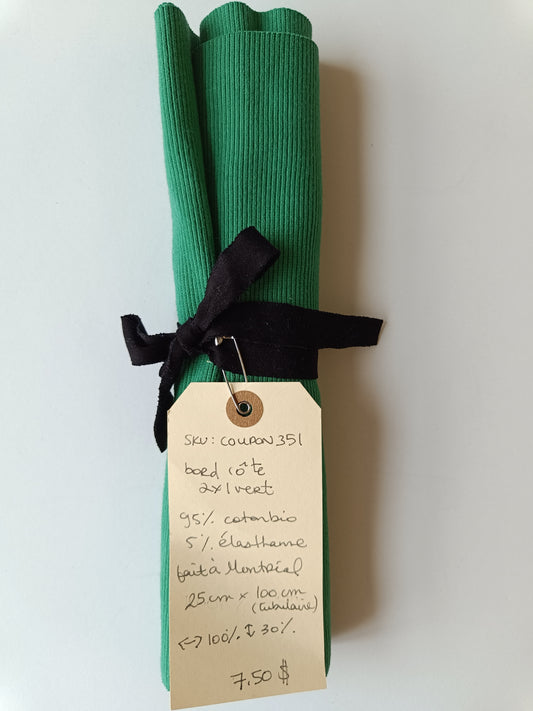 SKU: COUPON351
bord côte
2x1 vert
95% coton bio
5% élasthanne
fait à Montréal
25 cm x 100 cm
(tubulaire)
↔ 100% ↕ 30%
7.50 $